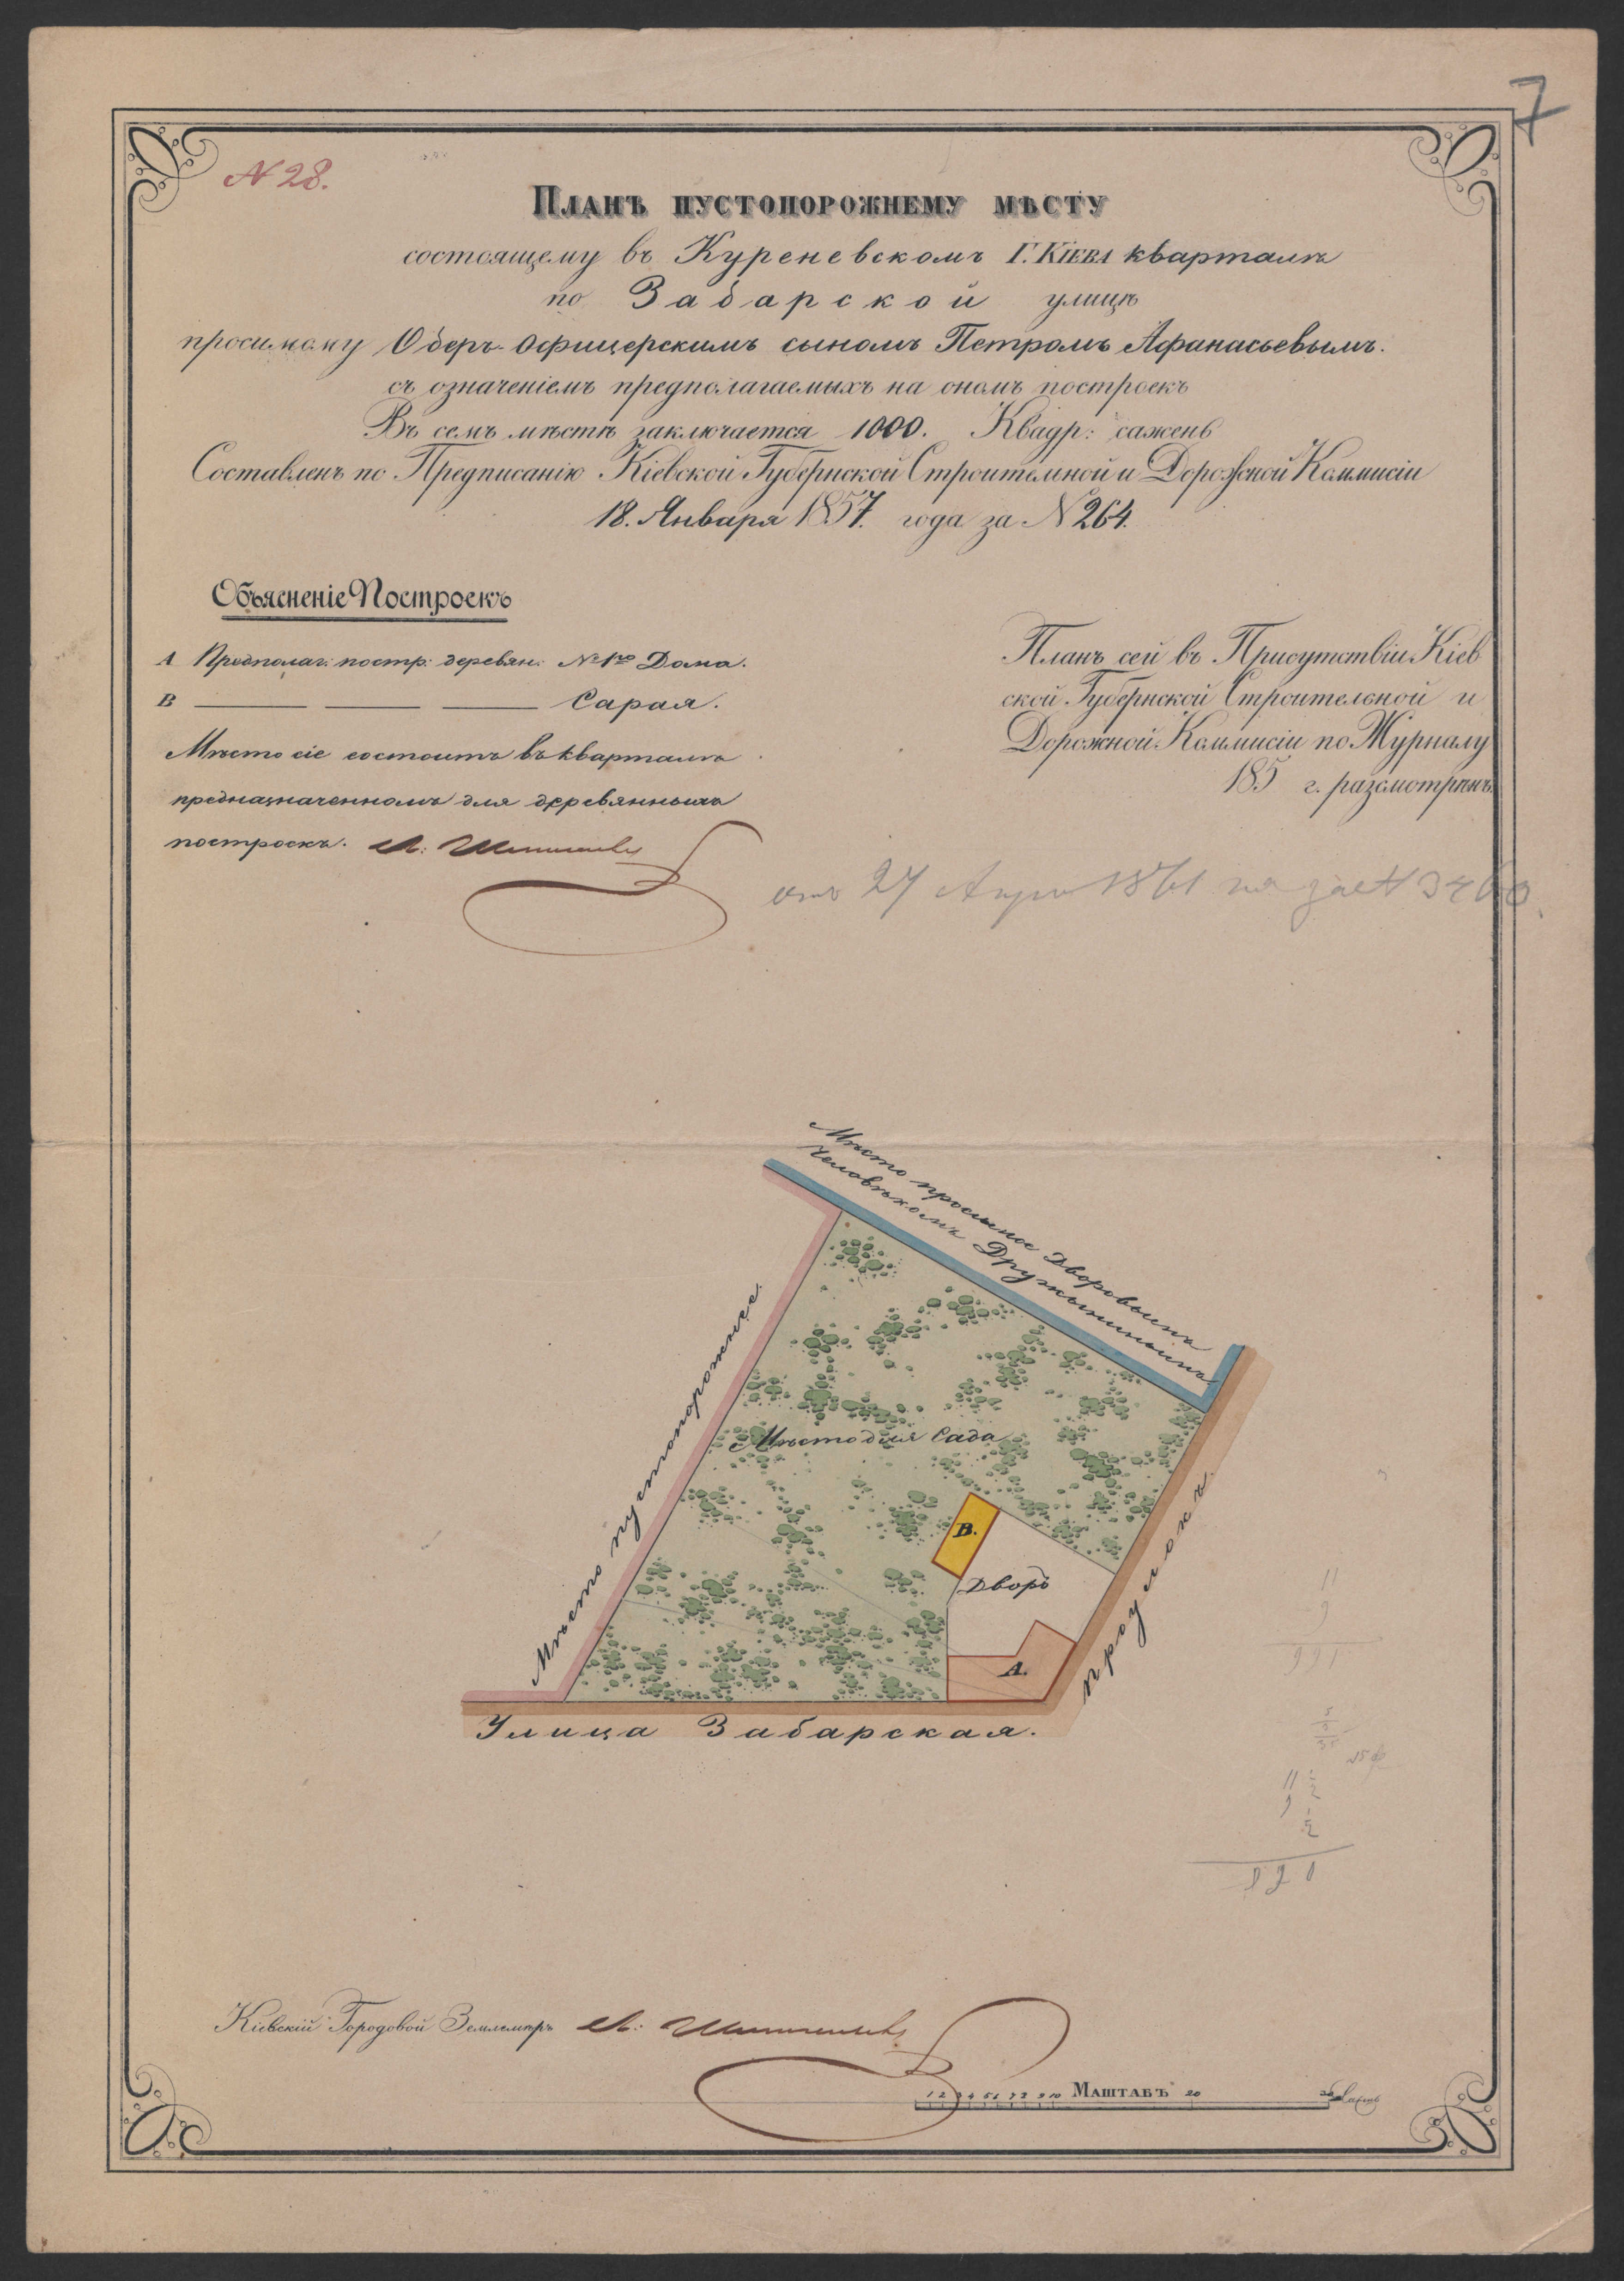 7
N 28.
Планъ пустопорожнему мѣсту
состоящему въ Куреневскомъ Г. Кіева кварталѣ
по Забарской улицѣ
просимому Оберъ-офицерскимъ сыномъ Петромъ Афанасьевымъ.
съ означеніемъ предполагаемыхъ на ономъ построекъ
Въ семъ мѣстѣ заключается 1000. Квадр: сажень
Составленъ по Предписанію Кіевской Губернской Строительной и Дорожной Коммисіи
18. Января 1857. года за N 264.
Объясненіе Построекъ
А Предполаг: постр: деревян: № 1го Дома.
В ——— ——— ——— Сарая.
Мѣсто сіе состоитъ въ кварталѣ
предназначенномъ для деревянныхъ
построекъ.
Планъ сей въ Присутствіи Кіев
ской Губернской Строительной и
Дорожной Коммисіи по Журналу
185 г. разсмотрѣнъ
отъ 27 1861
Мѣсто просимое Дворовымъ
Человѣкомъ Дружининымъ
Мѣсто пустопорожнее
Мѣсто для Сада
В.
Дворъ
А.
проулокъ.
Улица Забарская.
11
9
Кіевскій Городовой Землемѣръ
1 2 3 4 5 6 7 8 9 10 Маштабъ 20 30 Саженъ